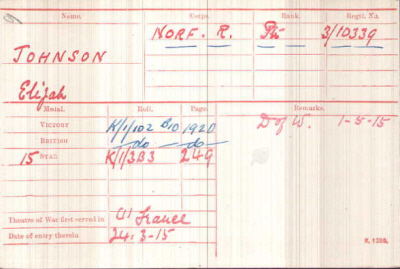 Name. Corps. Rank. Regtl. No.
NORF. R. Pte 3/10339
JOHNSON
Elijah
Medal. Roll. Page. Remarks.
VICTORY K/1/102 B10 1920 D of W. 1-5-15
BRITISH -do- -do-
15 STAR K/1/3B3 249
Theatre of War first served in (1) France
Date of entry therein 24.3-15
K. 1380.